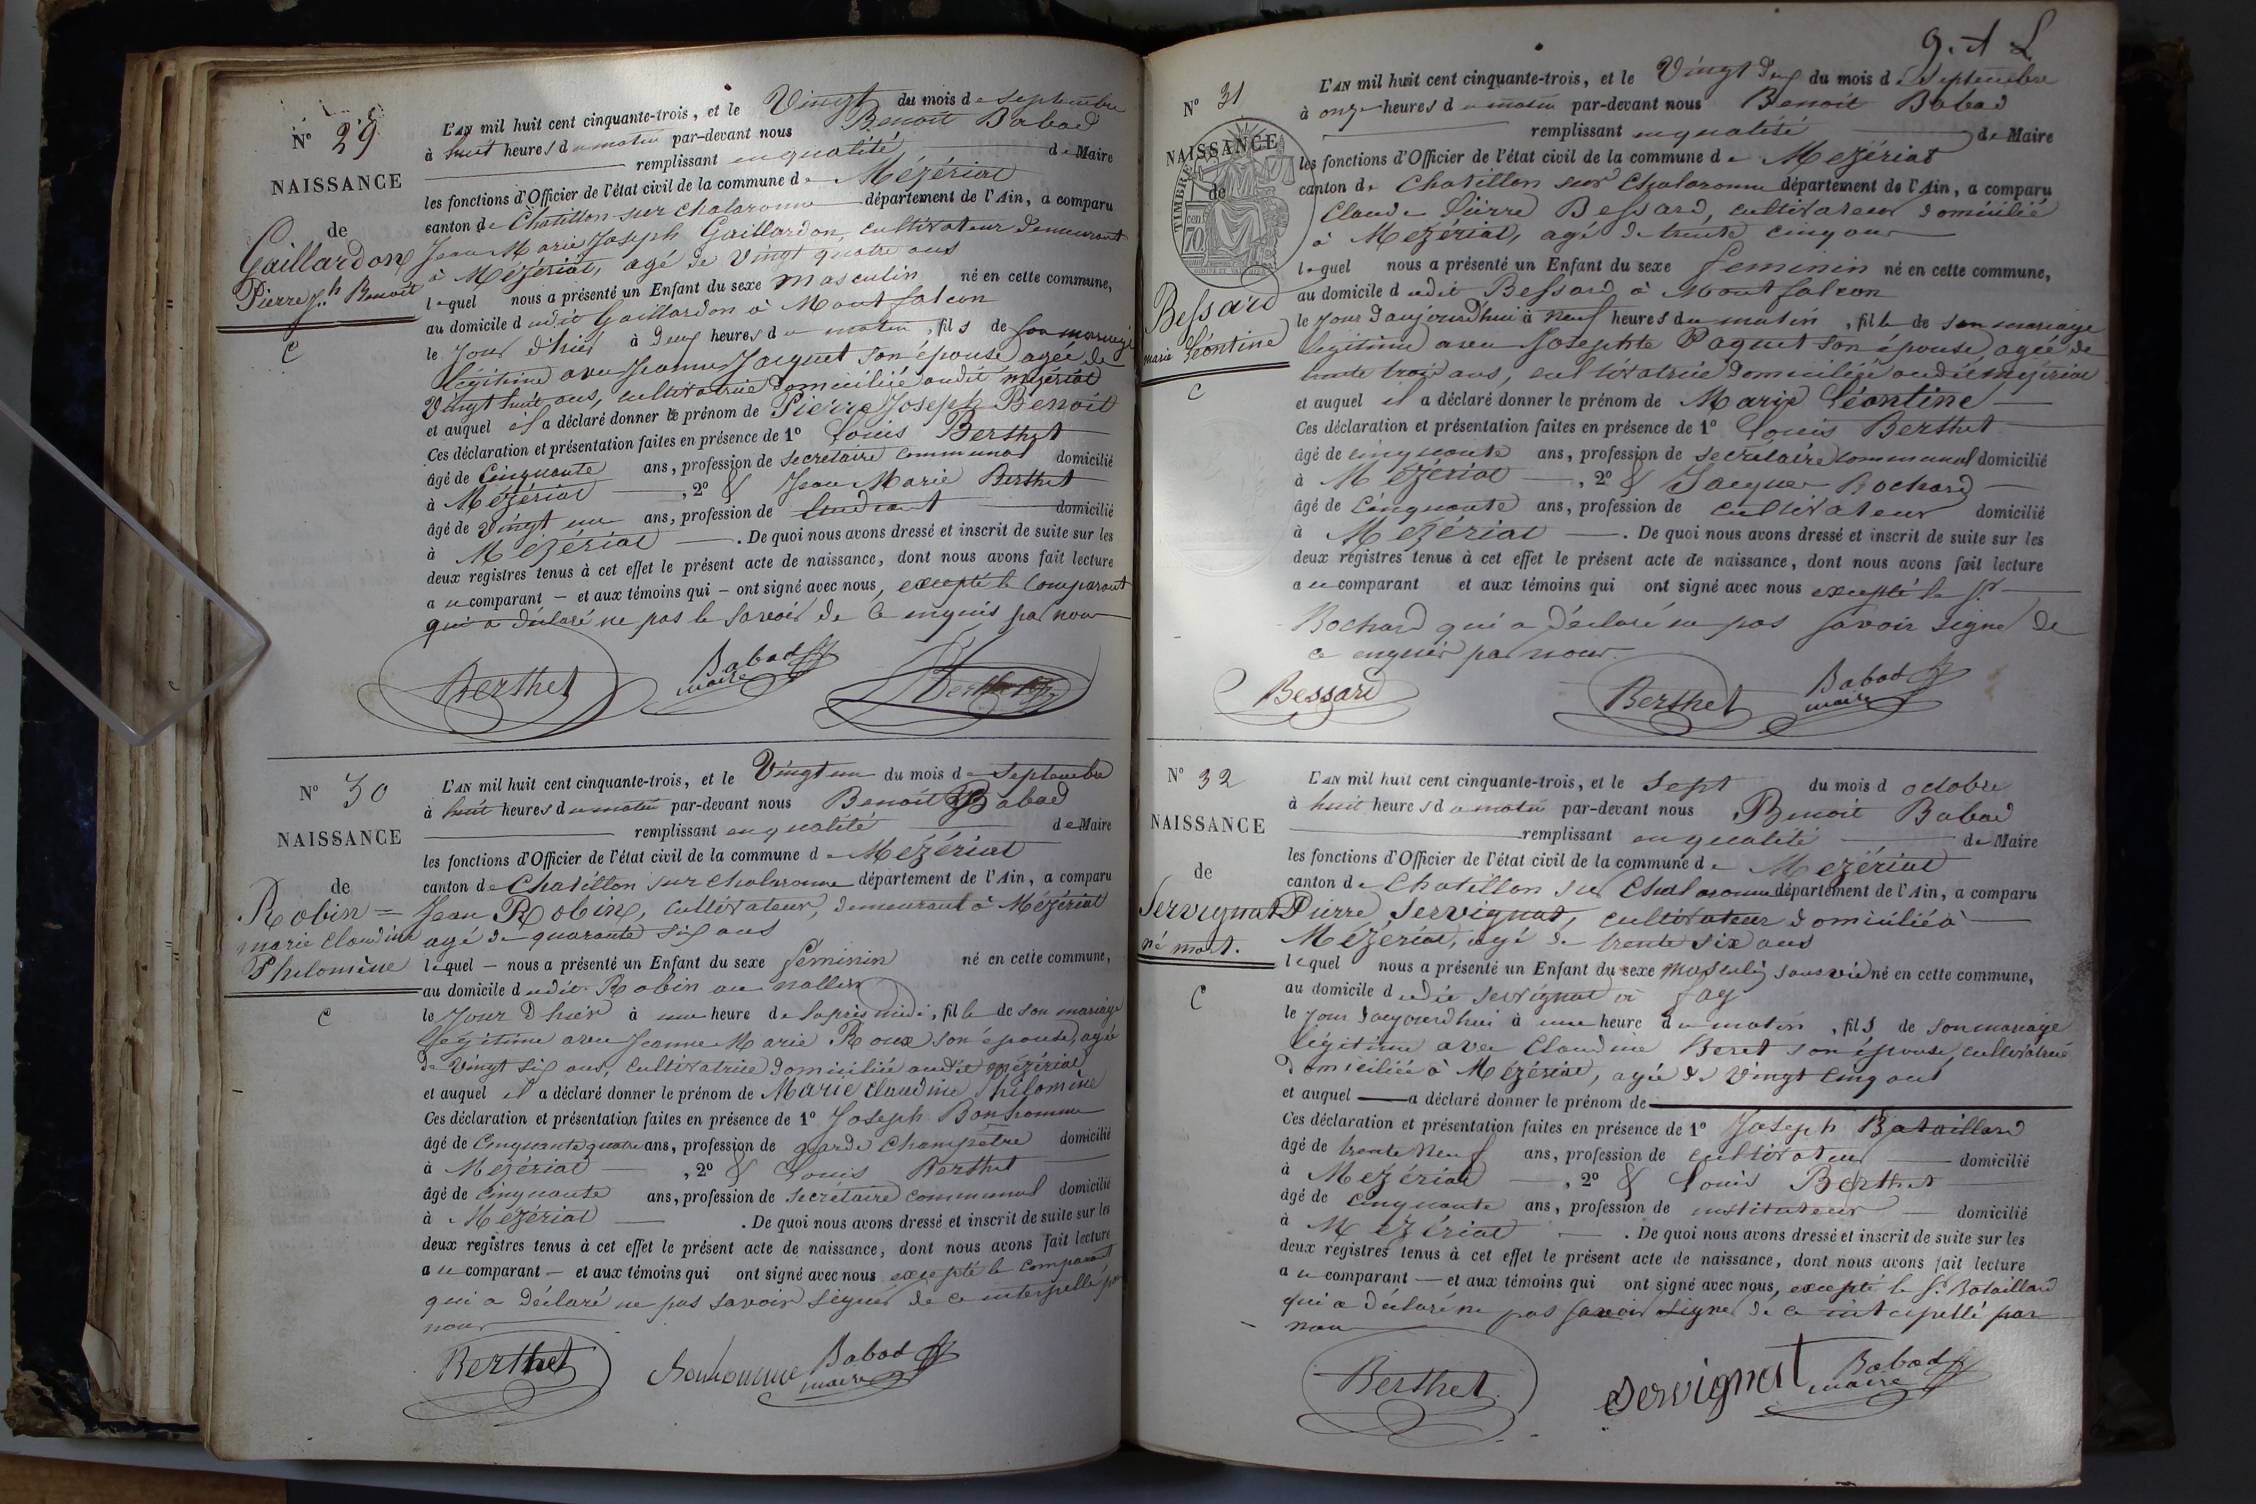 Nº 29
NAISSANCE
de
Gaillardon
Pierre Jh Benoit
C
L'AN mil huit cent cinquante-trois, et le Vingt du mois de septembre
à huit heures du matin par-devant nous Benoit Babad
remplissant en qualité de Maire
les fonctions d'Officier de l'état civil de la commune de Mézériat
canton de Chatillon sur chalaronne département de l'Ain, a comparu
Jean Marie Joseph Gaillardon, cultivateur demeurant
à Mézériat, agé de Vingt quatre ans
lequel nous a présenté un Enfant du sexe masculin né en cette commune,
au domicile dudit Gaillardon à Montfalcon
le jour d'hier à deux heures du matin, fils de son mariage
légitime avec Jeanne Jacquet son épouse, agée de
Vingt huit ans, cultivatrice domiciliée audit mézériat
et auquel il a déclaré donner le prénom de Pierre Joseph Benoit
Ces déclaration et présentation faites en présence de 1º Louis Berthet
âgé de Cinquante ans, profession de secrétaire communal domicilié
à Mézériat, 2º & Jean Marie Berthet
âgé de vingt un ans, profession de étudiant domicilié
à Mézériat. De quoi nous avons dressé et inscrit de suite sur les
deux registres tenus à cet effet le présent acte de naissance, dont nous avons fait lecture
au comparant et aux témoins qui ont signé avec nous, excepté le comparant
qui a déclaré ne pas le savoir de ce enquis par nous
Berthet Babad maire Berthet
Nº 30
NAISSANCE
de
Robin =
marie claudine
Philomène
C
L'AN mil huit cent cinquante-trois, et le Vingt un du mois de septembre
à huit heures du matin par-devant nous Benoit Babad
remplissant en qualité de Maire
les fonctions d'Officier de l'état civil de la commune de Mézériat
canton de Chatillon sur chalaronne département de l'Ain, a comparu
Jean Robin, cultivateur, demeurant à Mézériat
agé de quarante six ans
lequel nous a présenté un Enfant du sexe féminin né en cette commune,
au domicile dudit Robin au
le jour d'hier à une heure de laprès midi, fille de son mariage
légitime avec Jeanne Marie Roux son épouse, agée
de vingt six ans, cultivatrice domiciliée audit mézériat
et auquel il a déclaré donner le prénom de Marie claudine Philomène
Ces déclaration et présentation faites en présence de 1º Joseph Bonhomme
âgé de Cinquante quatre ans, profession de garde champêtre domicilié
à Mézériat, 2º & Louis Berthet
âgé de cinquante ans, profession de secrétaire communal domicilié
à Mézériat. De quoi nous avons dressé et inscrit de suite sur les
deux registres tenus à cet effet le présent acte de naissance, dont nous avons fait lecture
au comparant et aux témoins qui ont signé avec nous excepté le comparant
qui a déclaré ne pas savoir signer de ce interpellé par
nous
Berthet Bonhomme Babad maire
Nº 31
NAISSANCE
de
TIMBRE
cent
70
Bessard
marie Léontine
C
L'AN mil huit cent cinquante-trois, et le Vingt deux du mois de septembre
à onze heures du matin par-devant nous Benoit Babad
remplissant en qualité de Maire
les fonctions d'Officier de l'état civil de la commune de Mézériat
canton de Chatillon sur Chalaronne département de l'Ain, a comparu
Claude Pierre Bessard, cultivateur domicilié
à Mézériat, agé de trente cinq ans
lequel nous a présenté un Enfant du sexe féminin né en cette commune,
au domicile dudit Bessard à Montfalcon
le jour d'aujourd'hui à neuf heures du matin, fille de son mariage
légitime avec Josephte Paquet son épouse, agée de
trente trois ans, cultivatrice domiciliée audit mézériat
et auquel il a déclaré donner le prénom de Marie Léontine
Ces déclaration et présentation faites en présence de 1º Louis Berthet
âgé de cinquante ans, profession de secrétaire communal domicilié
à Mézériat, 2º & Jacques Bochard
âgé de Cinquante ans, profession de cultivateur domicilié
à Mézériat. De quoi nous avons dressé et inscrit de suite sur les
deux registres tenus à cet effet le présent acte de naissance, dont nous avons fait lecture
au comparant et aux témoins qui ont signé avec nous excepté le Sr
Bochard qui a déclaré ne pas savoir signer de
ce enquis par nous.
Bessard Berthet Babad maire
Nº 32
NAISSANCE
de
Servignat
né mort.
C
L'AN mil huit cent cinquante-trois, et le Sept du mois d octobre
à huit heures du matin par-devant nous Benoit Babad
remplissant en qualité de Maire
les fonctions d'Officier de l'état civil de la commune de Mézériat
canton de Chatillon sur Chalaronne département de l'Ain, a comparu
Pierre Servignat, cultivateur domicilié à
Mézériat, agé de trente six ans
lequel nous a présenté un Enfant du sexe masculin sans vie né en cette commune,
au domicile dudit Servignat à Fay
le jour d'aujourd'hui à une heure du matin, fils de son mariage
légitime avec Claudine Beret son épouse, cultivatrice
domiciliée à Mézériat, agée de Vingt cinq ans
et auquel a déclaré donner le prénom de
Ces déclaration et présentation faites en présence de 1º Joseph Bataillard
âgé de trente neuf ans, profession de cultivateur domicilié
à Mézériat, 2º & Louis Berthet
âgé de Cinquante ans, profession de instituteur domicilié
à Mézériat. De quoi nous avons dressé et inscrit de suite sur les
deux registres tenus à cet effet le présent acte de naissance, dont nous avons fait lecture
au comparant et aux témoins qui ont signé avec nous, excepté le Sr Bataillard
qui a déclaré ne pas savoir signer de ce interpellé par
nous
Berthet Servignat Babad maire